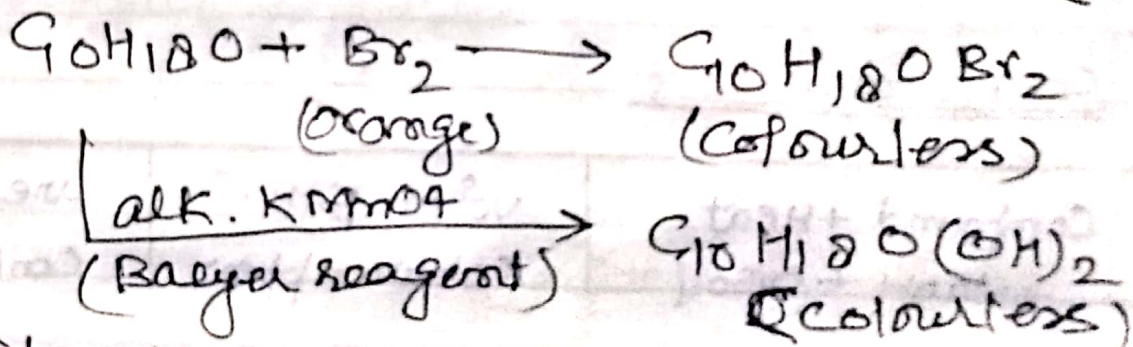 C10H18O + Br2 → C10H18OBr2
(orange) (Colourless)
alk. KMnO4 → C10H18O(OH)2
(Baeyer reagent) (colourless)